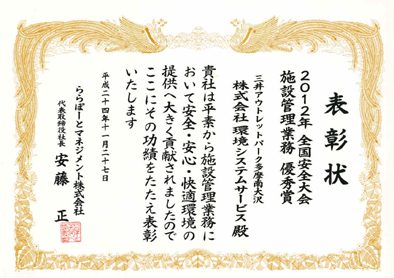 表彰状
2012年 全国安全大会
施設管理業務 優秀賞
三井アウトレットパーク多摩南大沢
株式会社 環境システムサービス 殿
貴社は平素から施設管理業務に
おいて安全・安心・快適環境の
提供へ大きく貢献されましたので
ここにその功績をたたえ表彰
いたします
平成二十四年十一月二十七日
ららぽーとマネジメント株式会社
代表取締役社長 安藤 正